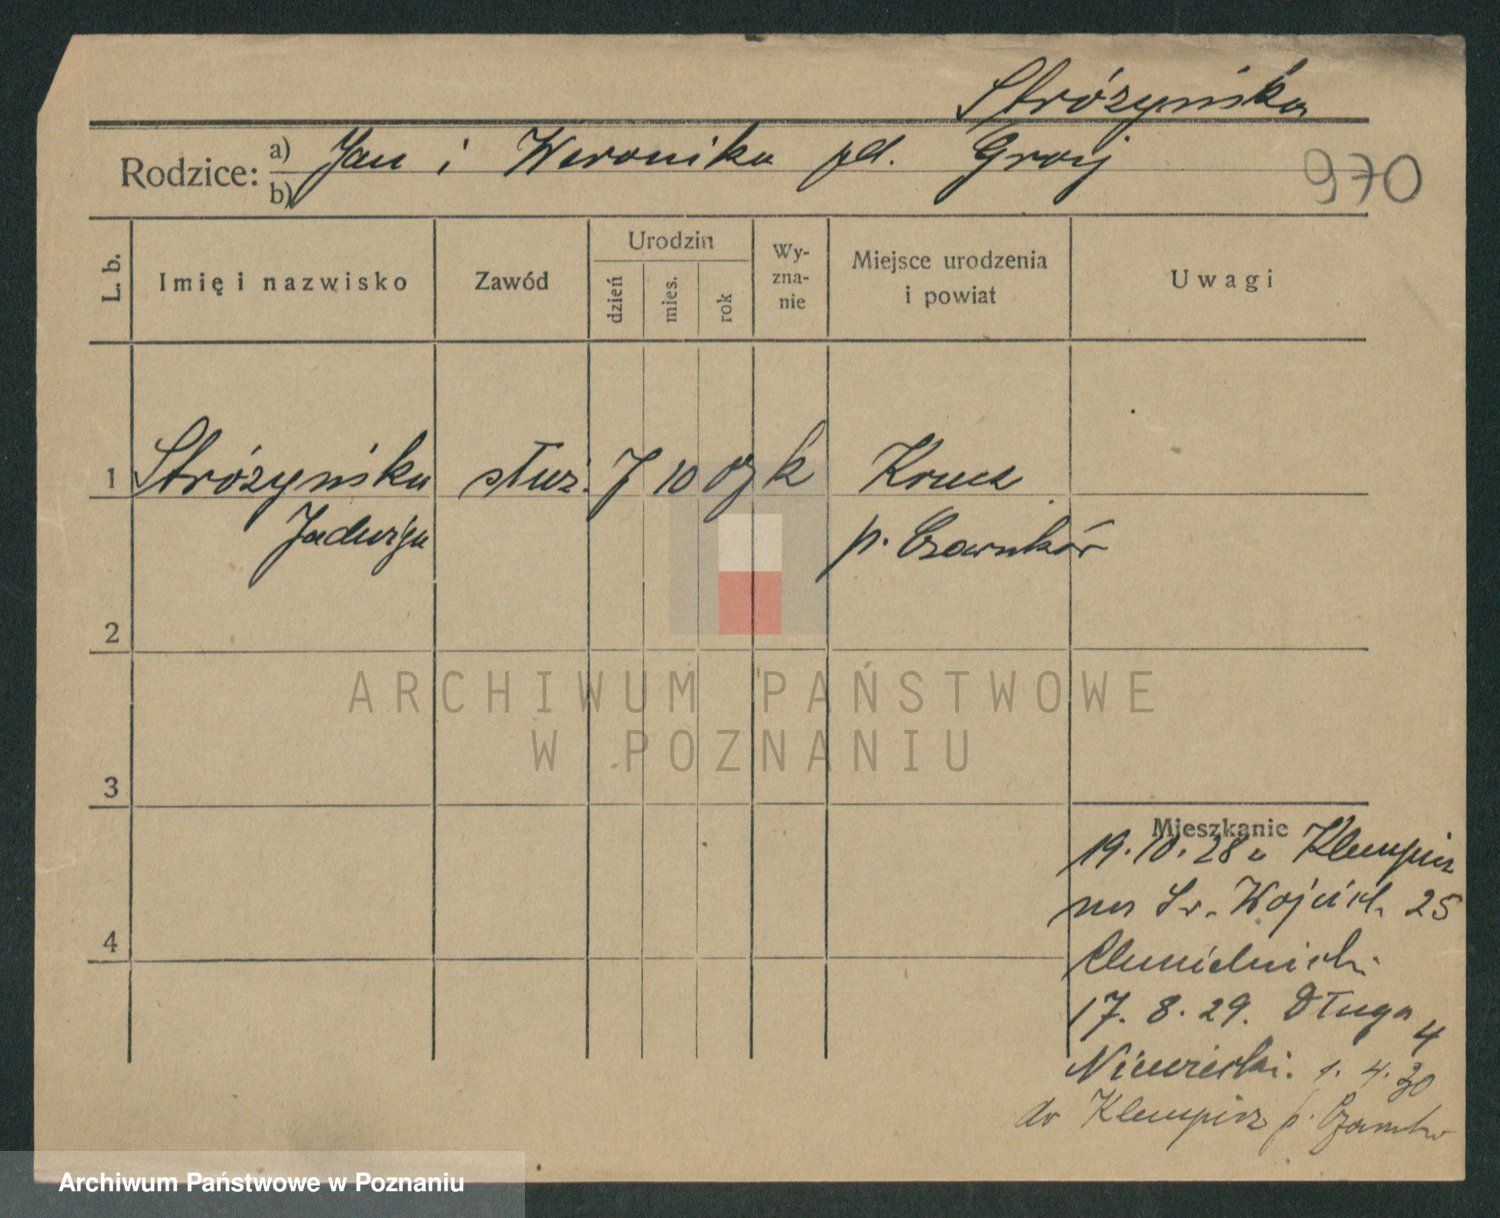 Stróżyńska
Rodzice: a) Jan i Weronika pd. Groij
b)
970
L. b.
Imię i nazwisko
Zawód
Urodzin
dzień
mies.
rok
Wy-
zna-
nie
Miejsce urodzenia
i powiat
Uwagi
1 Stróżyńska służ. 7 10 09 k Krucz
Jadwiga p. Czarnków
2
ARCHIWUM PAŃSTWOWE
W POZNANIU
3
Mieszkanie
19.10.28 z Klempicz
na Św. Wojciech 25
4
17.8.29. Długa 4
1.4.30
do Klempicz p. Czarnków
Archiwum Państwowe w Poznaniu